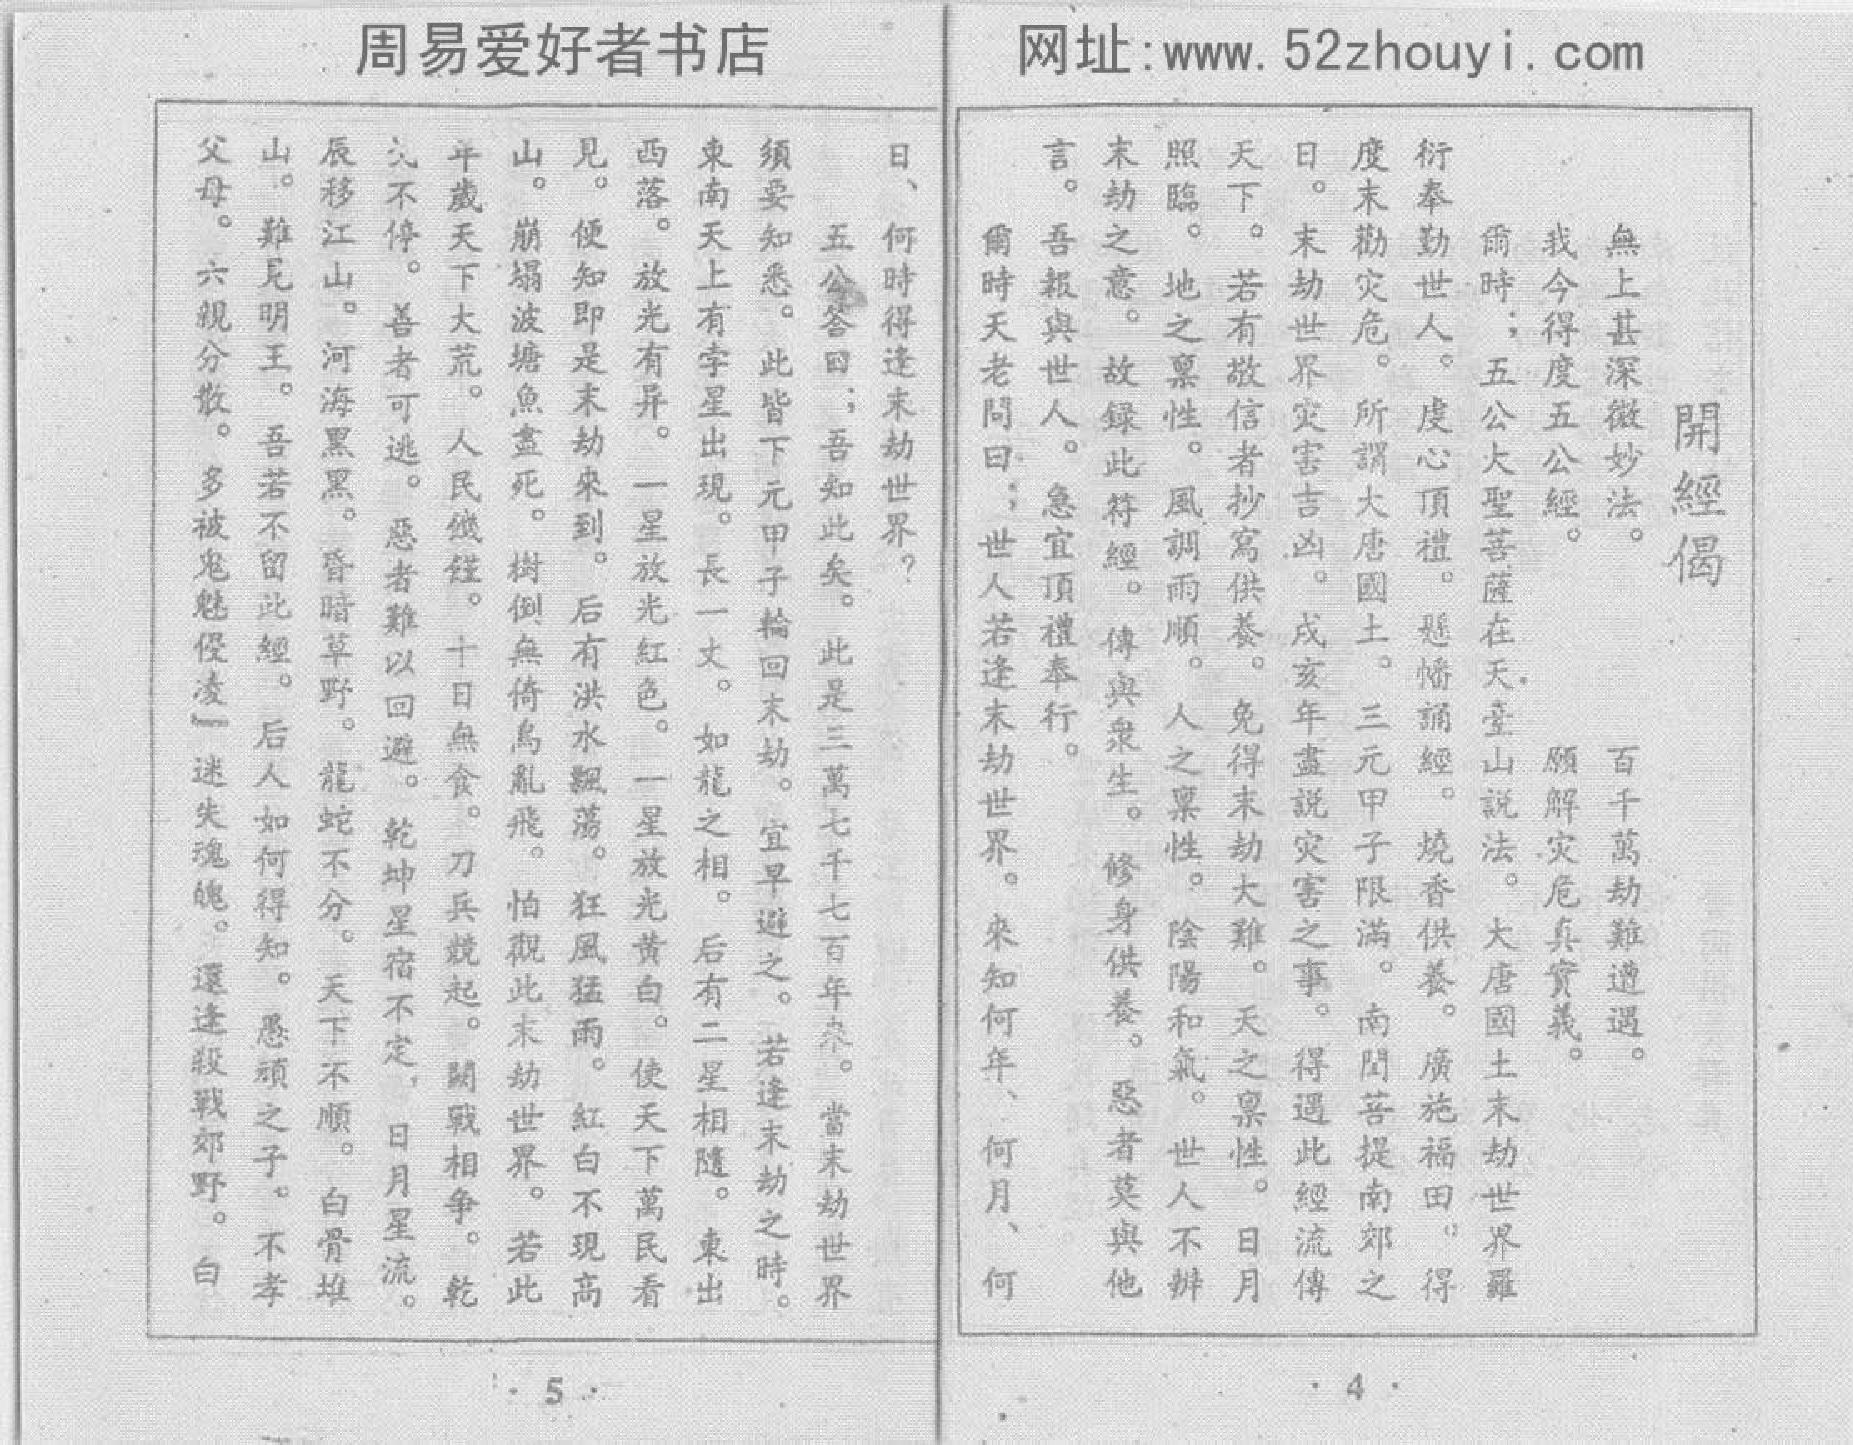 周易爱好者书店
网址:www.52zhouyi.com
開經偈
無上甚深微妙法。 百千萬劫難遭遇。
我今得度五公經。 願解灾危真實義。
爾時；五公大聖菩薩在天臺山説法。大唐國土末劫世界羅
衍奉勤世人。虔心頂禮。懸幡誦經。燒香供養。廣施福田。得
度末勸灾危。所謂大唐國土。三元甲子限滿。南閻菩提南郊之
日。末劫世界灾害吉凶。戌亥年盡説灾害之事。得遇此經流傳
天下。若有敬信者抄寫供養。免得末劫大難。天之稟性。日月
照臨。地之稟性。風調雨順。人之稟性。陰陽和氣。世人不辨
末劫之意。故録此符經。傳與衆生。修身供養。惡者莫與他
言。吾報與世人。急宜頂禮奉行。
爾時天老問曰；世人若逢末劫世界。來知何年、何月、何
·4·
日、何時得逢末劫世界？
五公答曰；吾知此矣。此是三萬七千七百年來。當末劫世界
須要知悉。此皆下元甲子輪回末劫。宜早避之。若逢末劫之時。
東南天上有孛星出現。長一丈。如龍之相。后有二星相隨。東出
西落。放光有异。一星放光紅色。一星放光黄白。使天下萬民看
見。便知即是末劫來到。后有洪水飄蕩。狂風猛雨。紅白不現高
山。崩塌波塘魚盡死。樹倒無倚鳥亂飛。怕觀此末劫世界。若此
年歲天下大荒。人民饑饉。十日無食。刀兵競起。鬭戰相争。乾
不停。善者可逃。惡者難以回避。乾坤星宿不定，日月星流。
辰移江山。河海黑黑。昏暗草野。龍蛇不分。天下不順。白骨堆
山。難見明王。吾若不留此經。后人如何得知。愚頑之子。不孝
父母。六親分散。多被鬼魅侵凌』迷失魂魄。還逢殺戰郊野。白
·5·